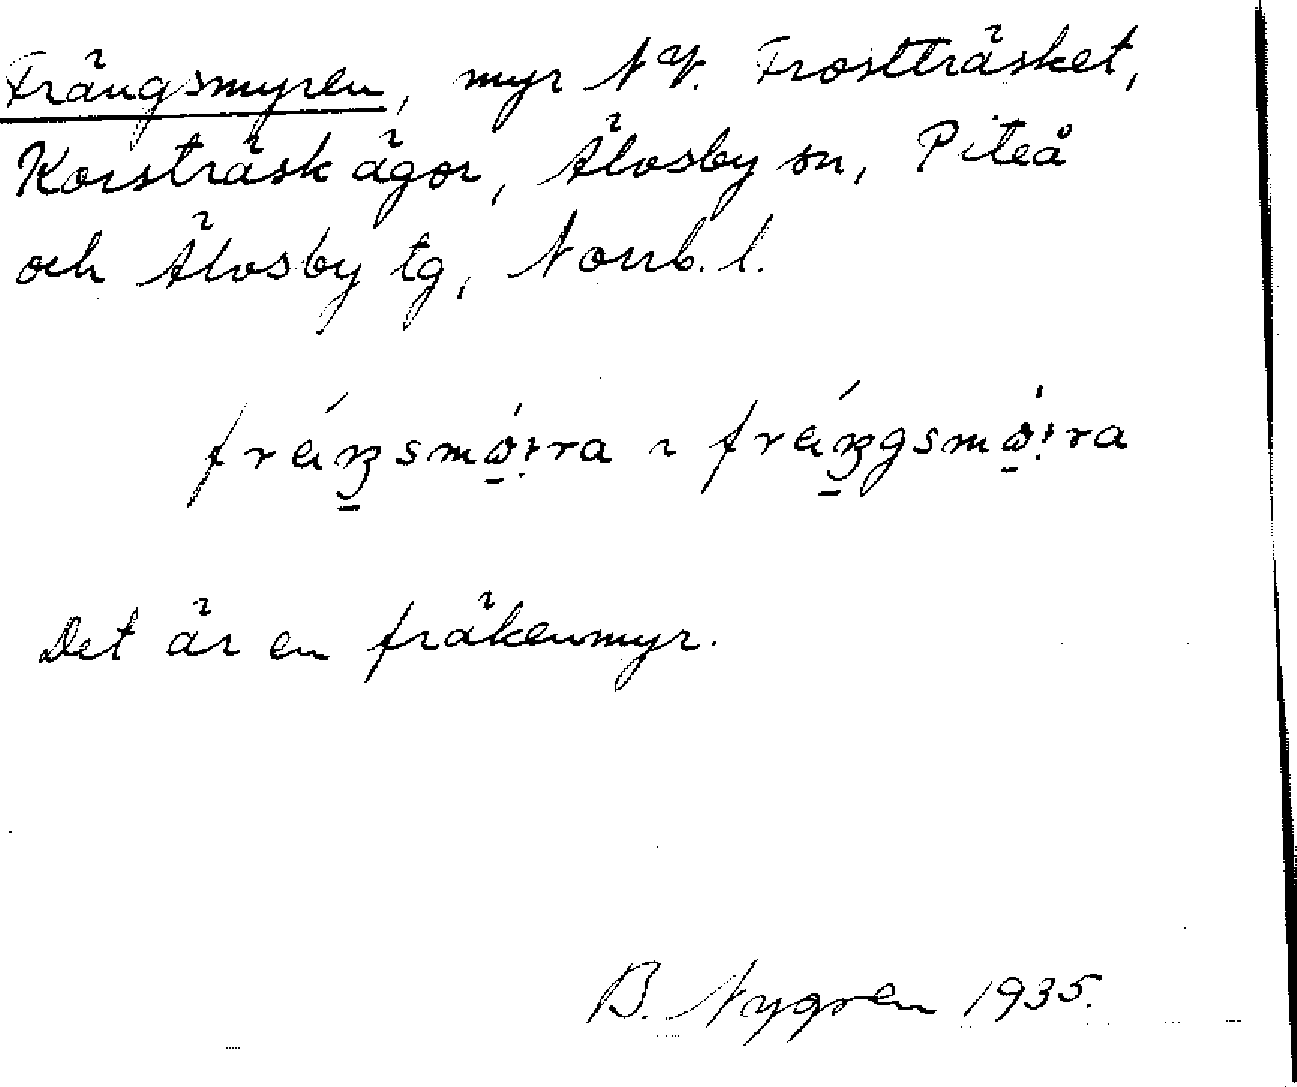 Frängsmyren, myr NV. Frostträsket,
Korsträsk ägor, Älvsby sn, Piteå
och Älvsby tg, Norrb. l.
fräŋsmö̀ra ~ fräŋgsmö̀ra
Det är en fräkenmyr.
B. Nygren 1935.